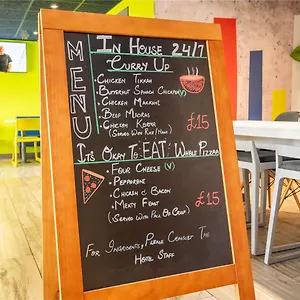 MENU
IN HOUSE 24/7
CURRY UP
• CHICKEN TIKKAH
• BUTTERNUT SPINACH CHICKPEA (V)
• CHICKEN MAKHANI
• BEEF MADRAS
• CHICKEN KORMA
(SERVED WITH RICE / NAAN)
£15
IT'S OKAY TO EAT WHOLE PIZZAS
• FOUR CHEESE (V)
• PEPPERONI
• CHICKEN & BACON
• MEATY FEAST
(SERVED WITH
£15
FOR INGREDIENTS PLEASE CONSULT THE
HOTEL STAFF